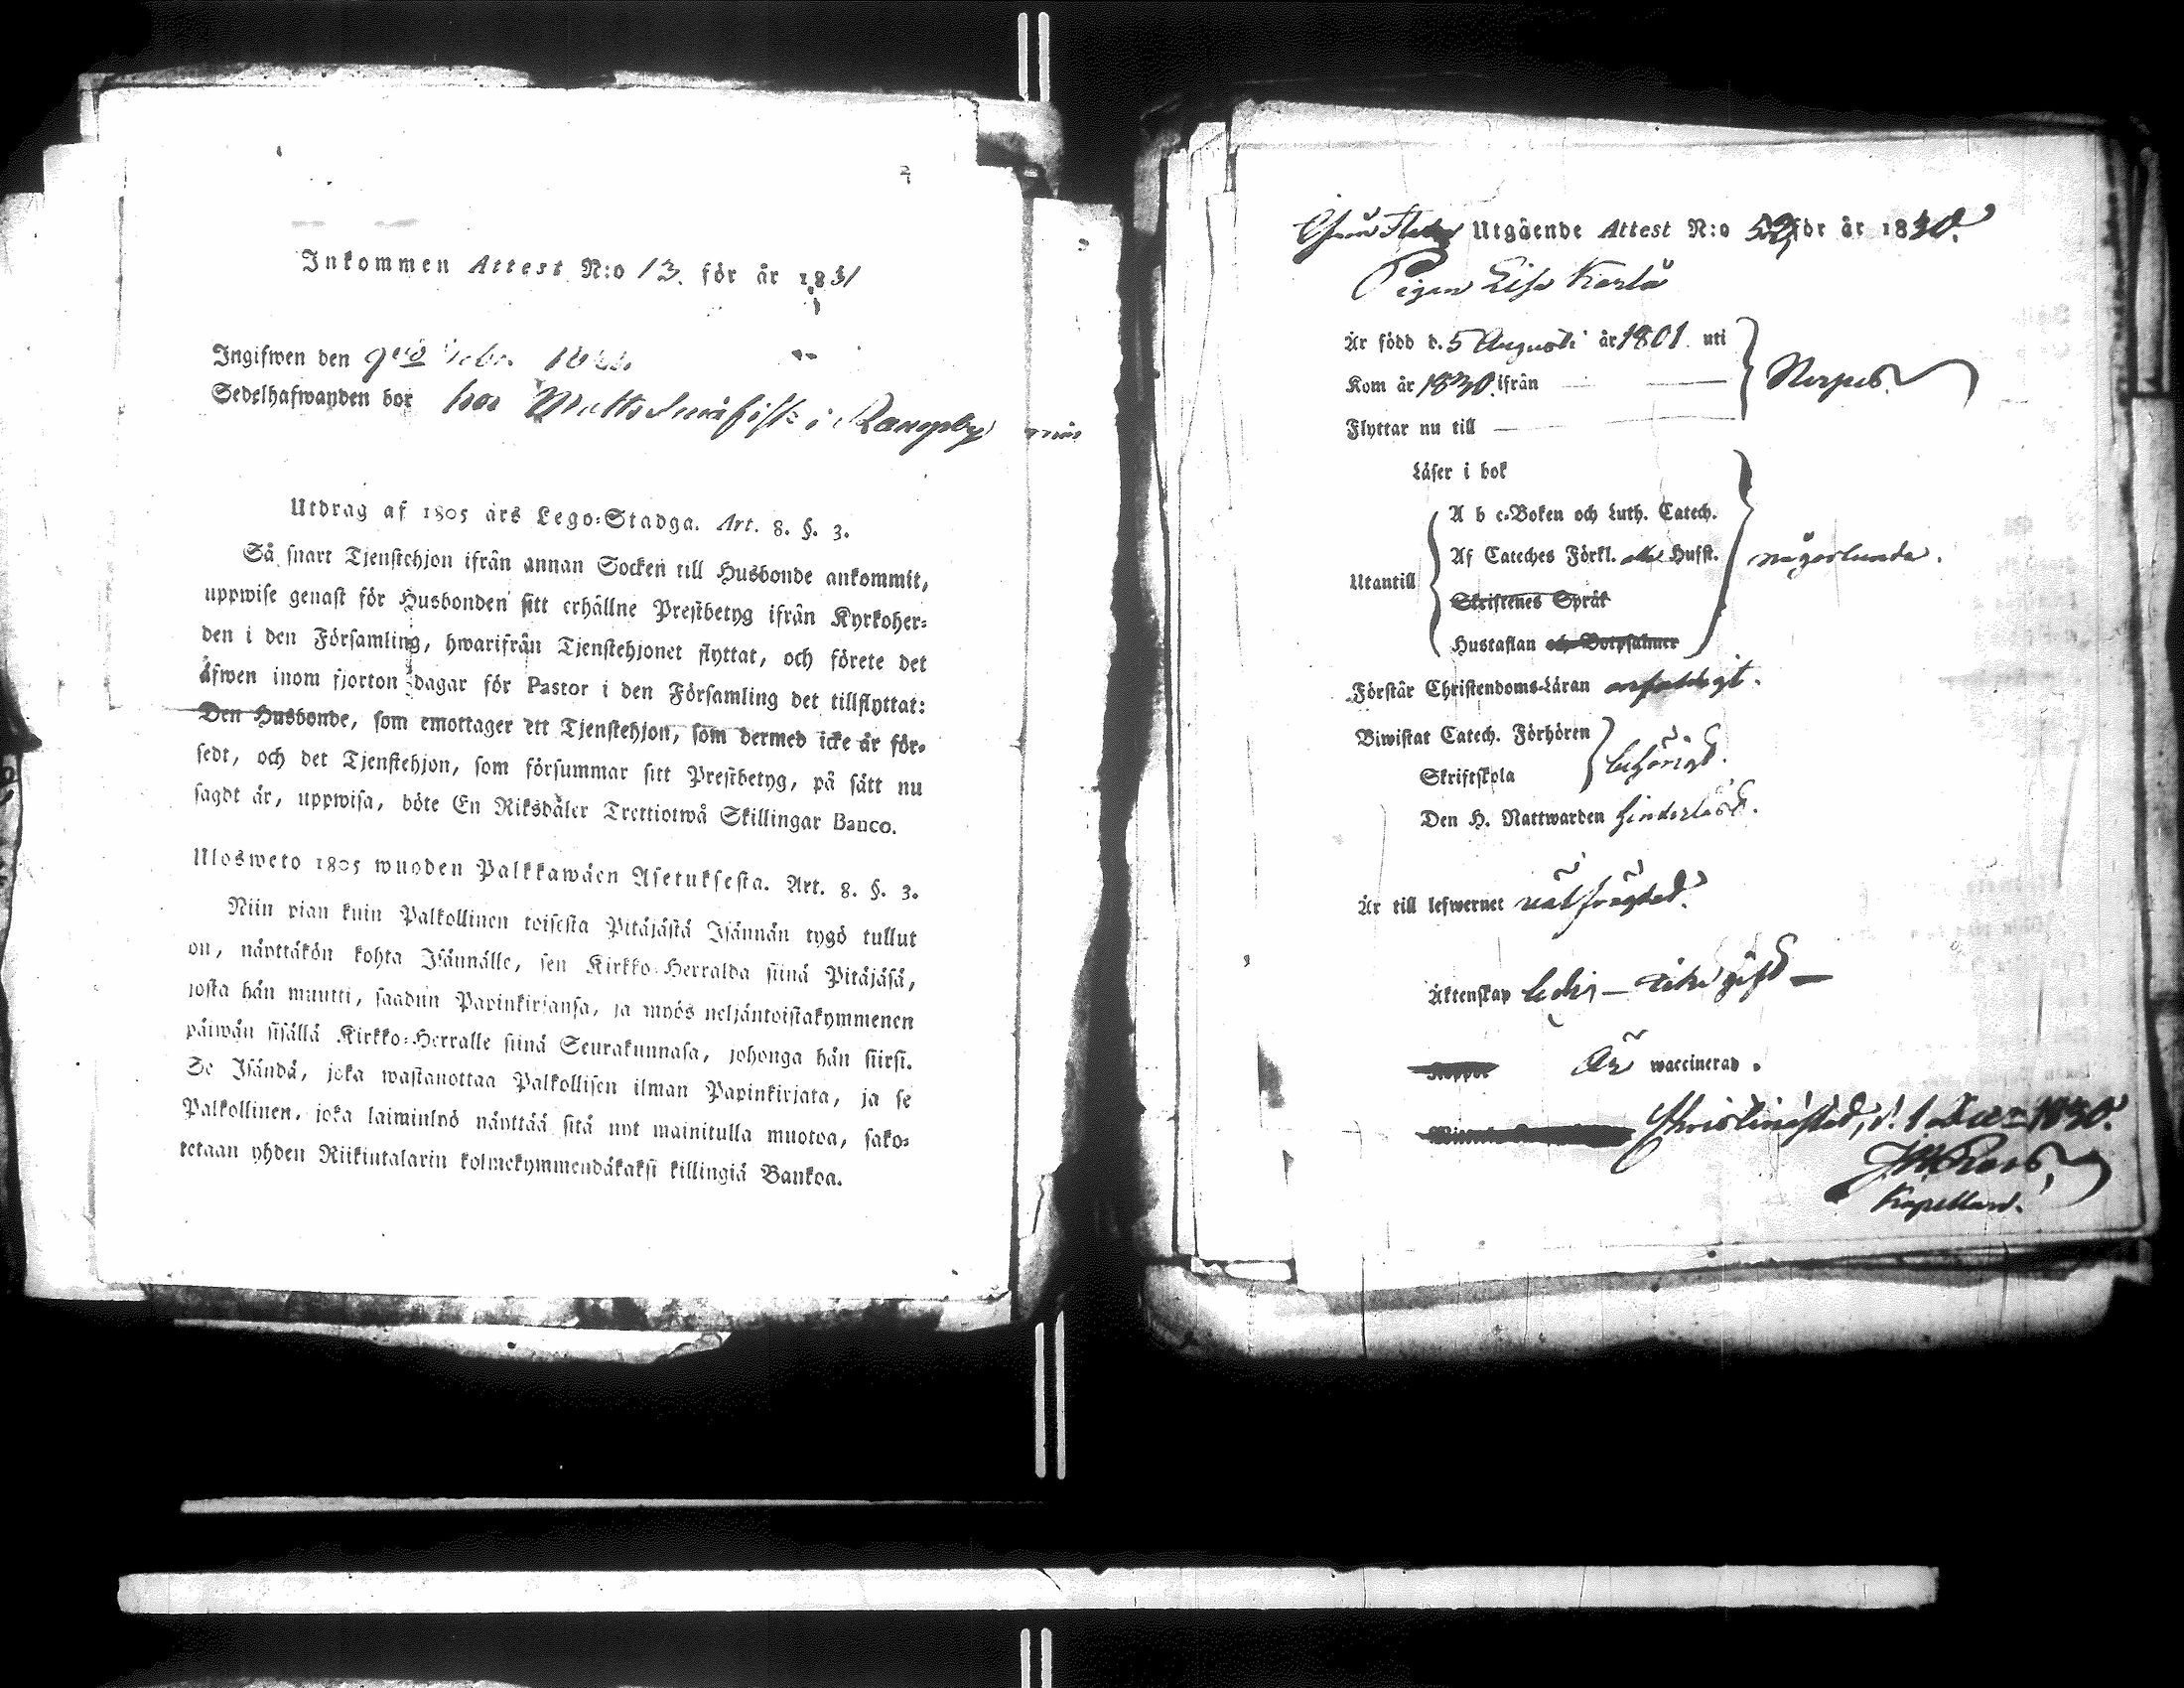 Inkommen Attest N:o 13. för år 1831
Ingifwen den 9de Febr.
Sedelhafwanden bor hos Matts i Rangsby
Utdrag af 1805 års Lego-Stadga. Art. 8. §. 3.
Så snart Tjenstehjon ifrån annan Socken till Husbonde ankommit,
uppwise genast för Husbonden sitt erhållne Prestbetyg ifrån Kyrkoher-
den i den Församling, hwarifrån Tjenstehjonet flyttat, och förete det
äfwen inom fjorton dagar för Pastor i den Församling det tillflyttat:
Den Husbonde, som emottager ett Tjenstehjon, som dermed icke är för-
sedt, och det Tjenstehjon, som försummar sitt Prestbetyg, på sätt nu
sagdt är, uppwisa, böte En Riksdaler Trettiotwå Skillingar Banco.
Ulosweto 1805 wuoden Palkkawäen Asetuksesta. Art. 8. §. 3.
Niin pian kuin Palkollinen toisesta Pitäjästä Isännän tygö tullut
on, näyttäkön kohta Isännälle, sen Kirkko-Herralda siinä Pitäjäsä,
josta hän muutti, saadun Papinkirjansa, ja myös neljäntoistakymmenen
päiwän sisällä Kirkko-Herralle siinä Seurakunnasa, johonga hän siirsi.
Se Isändä, joka wastanottaa Palkollisen ilman Papinkirjata, ja se
Palkollinen, joka laiminlyö näyttää sitä nyt mainitulla muotoa, sako-
tetaan yhden Riikintalarin kolmekymmendäkaksi killingiä Bankoa.
Utgående Attest N:o 52 för år 1830.
Pigan Lisa Karlå
Är född d. 5 Augusti år 1801. uti
Kom år 1830. ifrån
Nerpes.
Flyttar nu till
Läser i bok
A b c-Boken och Luth. Catech.
Af Cateches Förkl. Husft.
någorlunda.
Utantill
Skriftenes Språk
Hustaflan och Botpsalmer
Förstår Christendoms-Läran enfaldigt.
Biwistat Catech. Förhören
behörigt.
Skriftskola
Den H. Nattwarden hinderlöst.
Är till lefwernet wälfrägdad.
Äktenskap ledig – icke gift –
Koppor Är waccinerad.
Christinestad, d. 1830.
Kapellan.